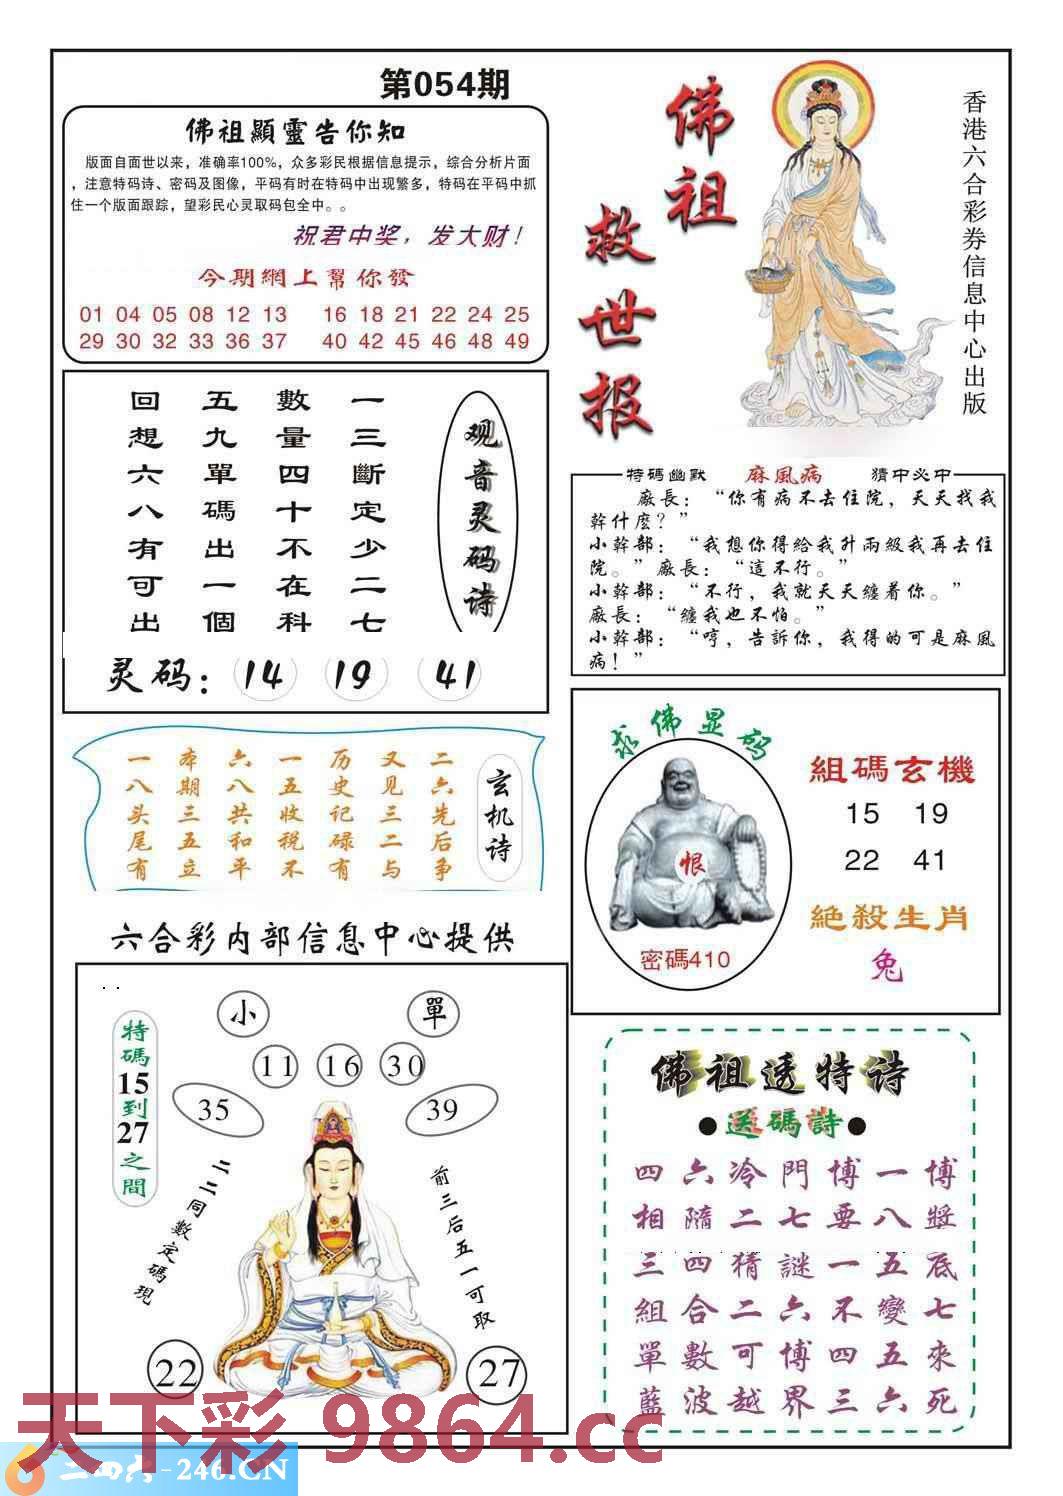 第054期
佛祖顯靈告你知
版面自面世以来，准确率100%，众多彩民根据信息提示，综合分析片面
，注意特码诗、密码及图像，平码有时在特码中出现繁多，特码在平码中抓
住一个版面跟踪，望彩民心灵取码包全中。。
祝君中奖，发大财！
今期網上幫你發
01 04 05 08 12 13 16 18 21 22 24 25
29 30 32 33 36 37 40 42 45 46 48 49
佛祖
救世报
香港六合彩券信息中心出版
观音灵码诗
一三斷定少二七
數量四十不在科
五九單碼出一個
回想六八有可出
灵码：14 19 41
特碼幽默 麻風病 猜中必中
廠長：“你有病不去住院，天天找我
幹什麽？”
小幹部：“我想你得給我升兩級我再去住
院。”廠長：“這不行。”
小幹部：“不行，我就天天纏着你。”
廠長：“纏我也不怕。”
小幹部：“哼，告訴你，我得的可是麻風
病！”
玄机诗
二六先后争
又见三二与
历史记碌有
一五收税不
六八共和平
本期三五立
一八头尾有
求佛显码
恨
密碼410
組碼玄機
15 19
22 41
絶殺生肖
兔
六合彩内部信息中心提供
小
單
11 16 30
35
39
特碼15到27之間
二二同數定碼現
前三后五一可取
22
27
佛祖透特诗
●送碼詩●
四六冷門博一博
相隨二七要八獎
三四猜謎一五底
組合二六不變七
單數可博四五來
藍波越界三六死
天下彩 9864.cc
二四六-246.CN